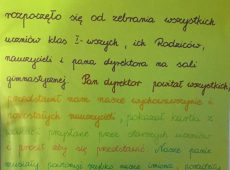 rozpoczęło się od zebrania wszystkich
uczniów klas I-wszych, ich Rodziców,
nauczycieli i pana dyrektora na sali
gimnastycznej. Pan dyrektor powitał wszystkich,
przedstawił nam nasze wychowawczynie i
pozostałych nauczycieli, pokazał kartki z
przez starszych uczniów
i prosił aby się przedstawić. Nasze panie
musiały poznać nasze imiona,